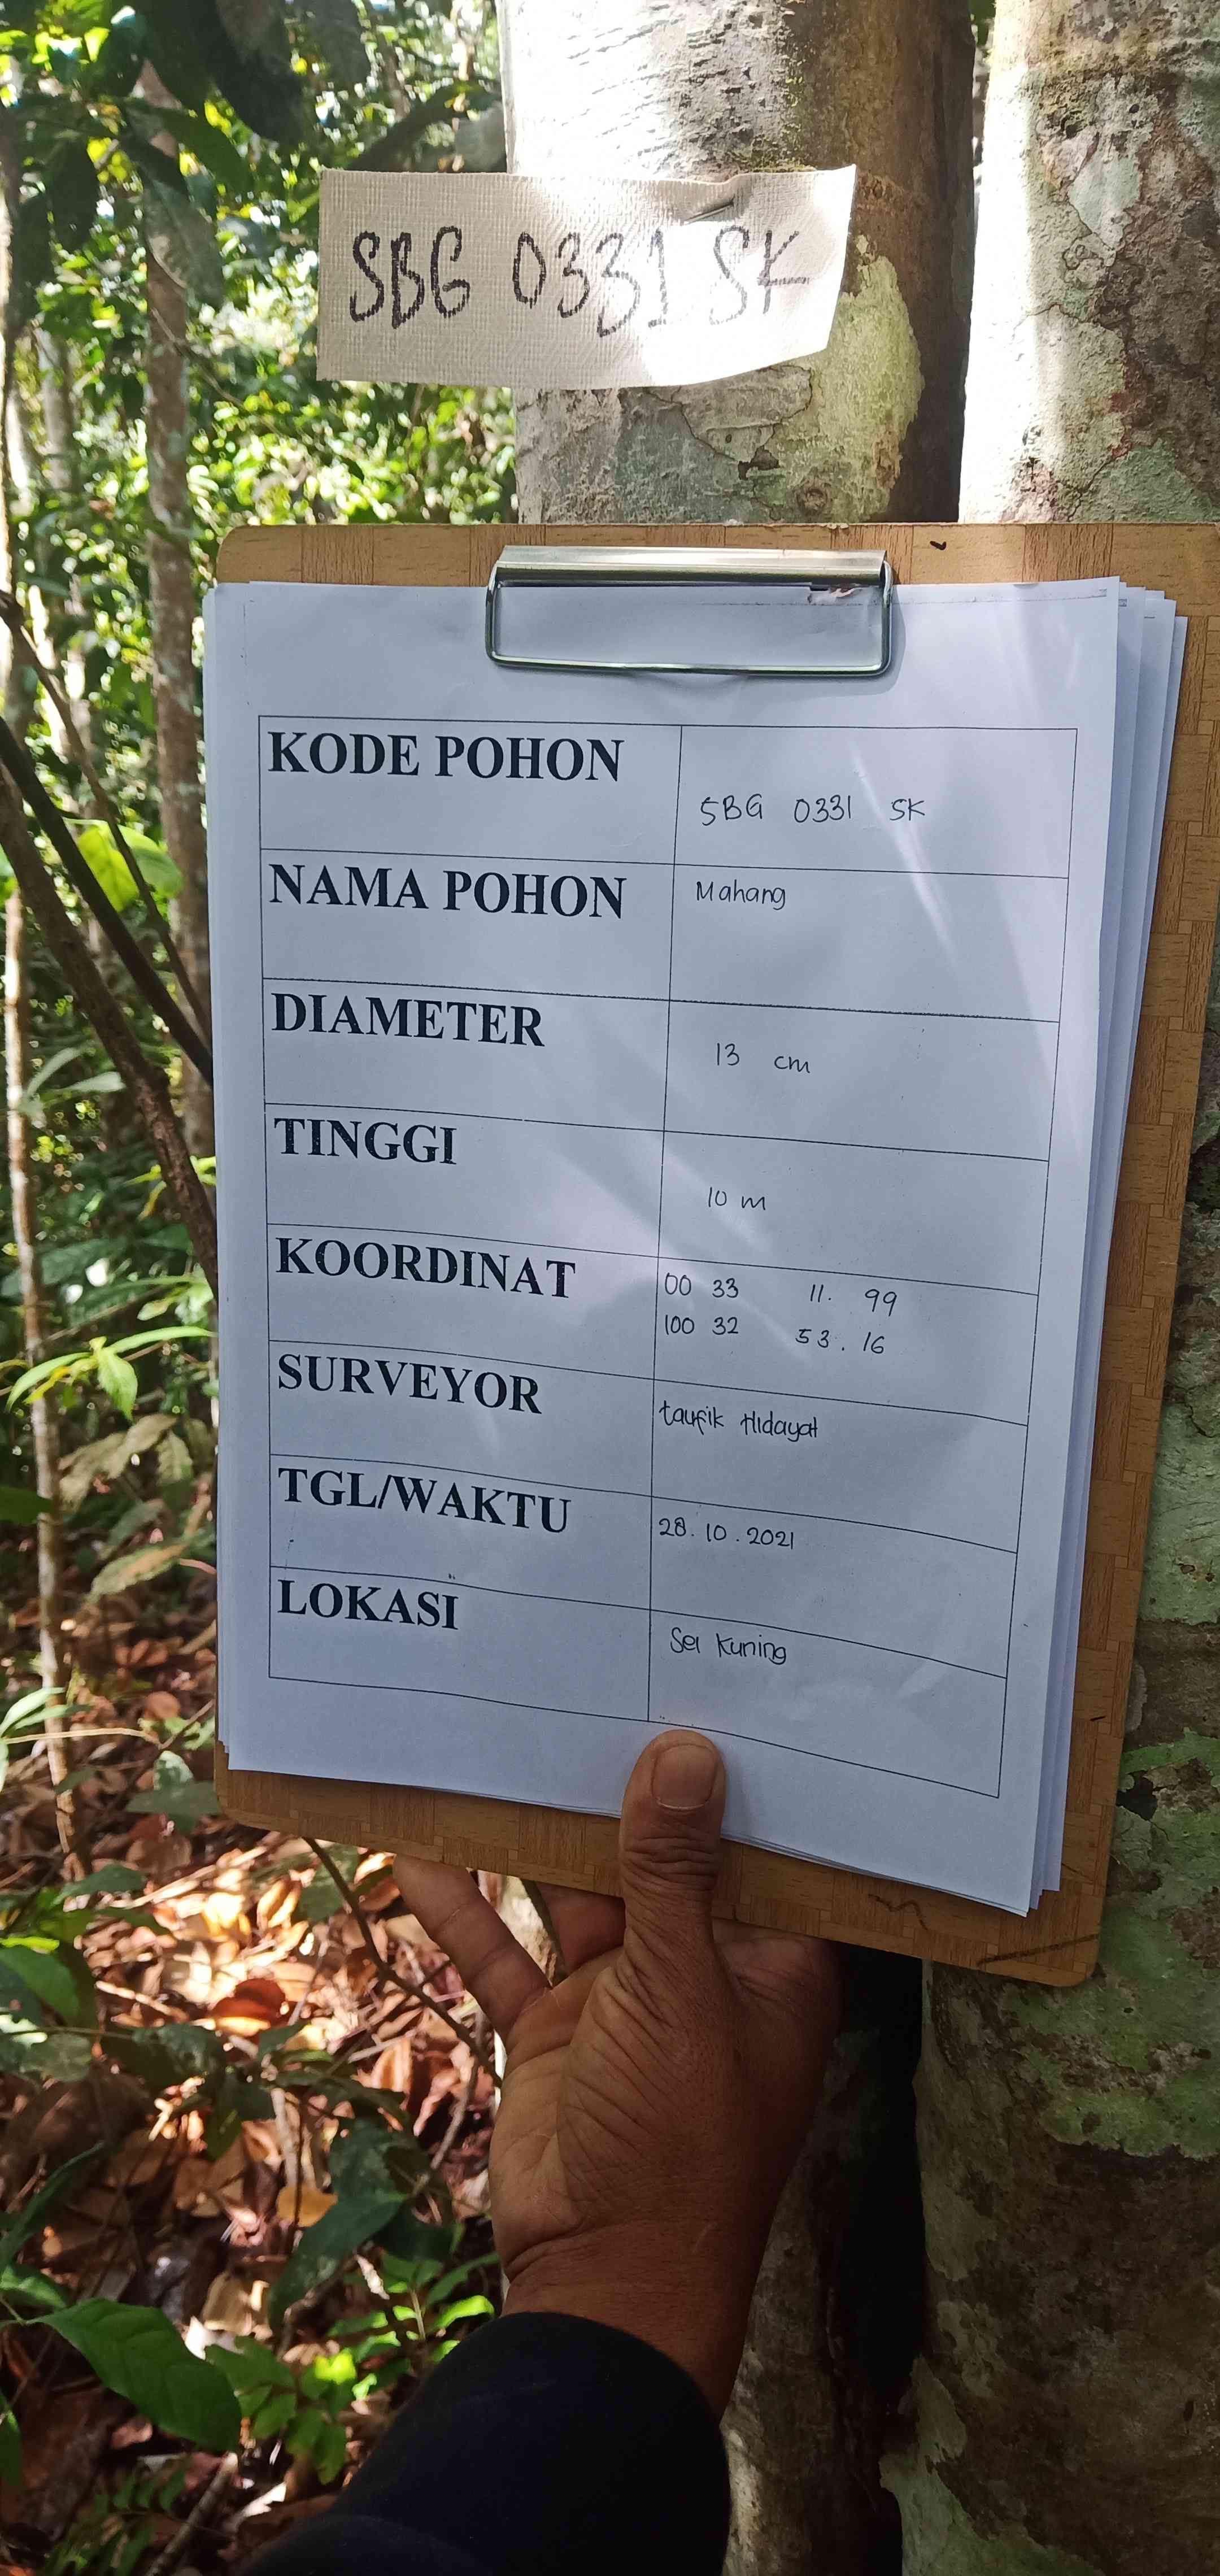 SBG 0331 SK
KODE POHON
SBG 0331 SK
NAMA POHON
Mahang
DIAMETER
13 cm
TINGGI
10 m
KOORDINAT
00 33 11. 99
100 32 53. 16
SURVEYOR
taufik Hidayat
TGL/WAKTU
28.10.2021
LOKASI
Sei Kuning